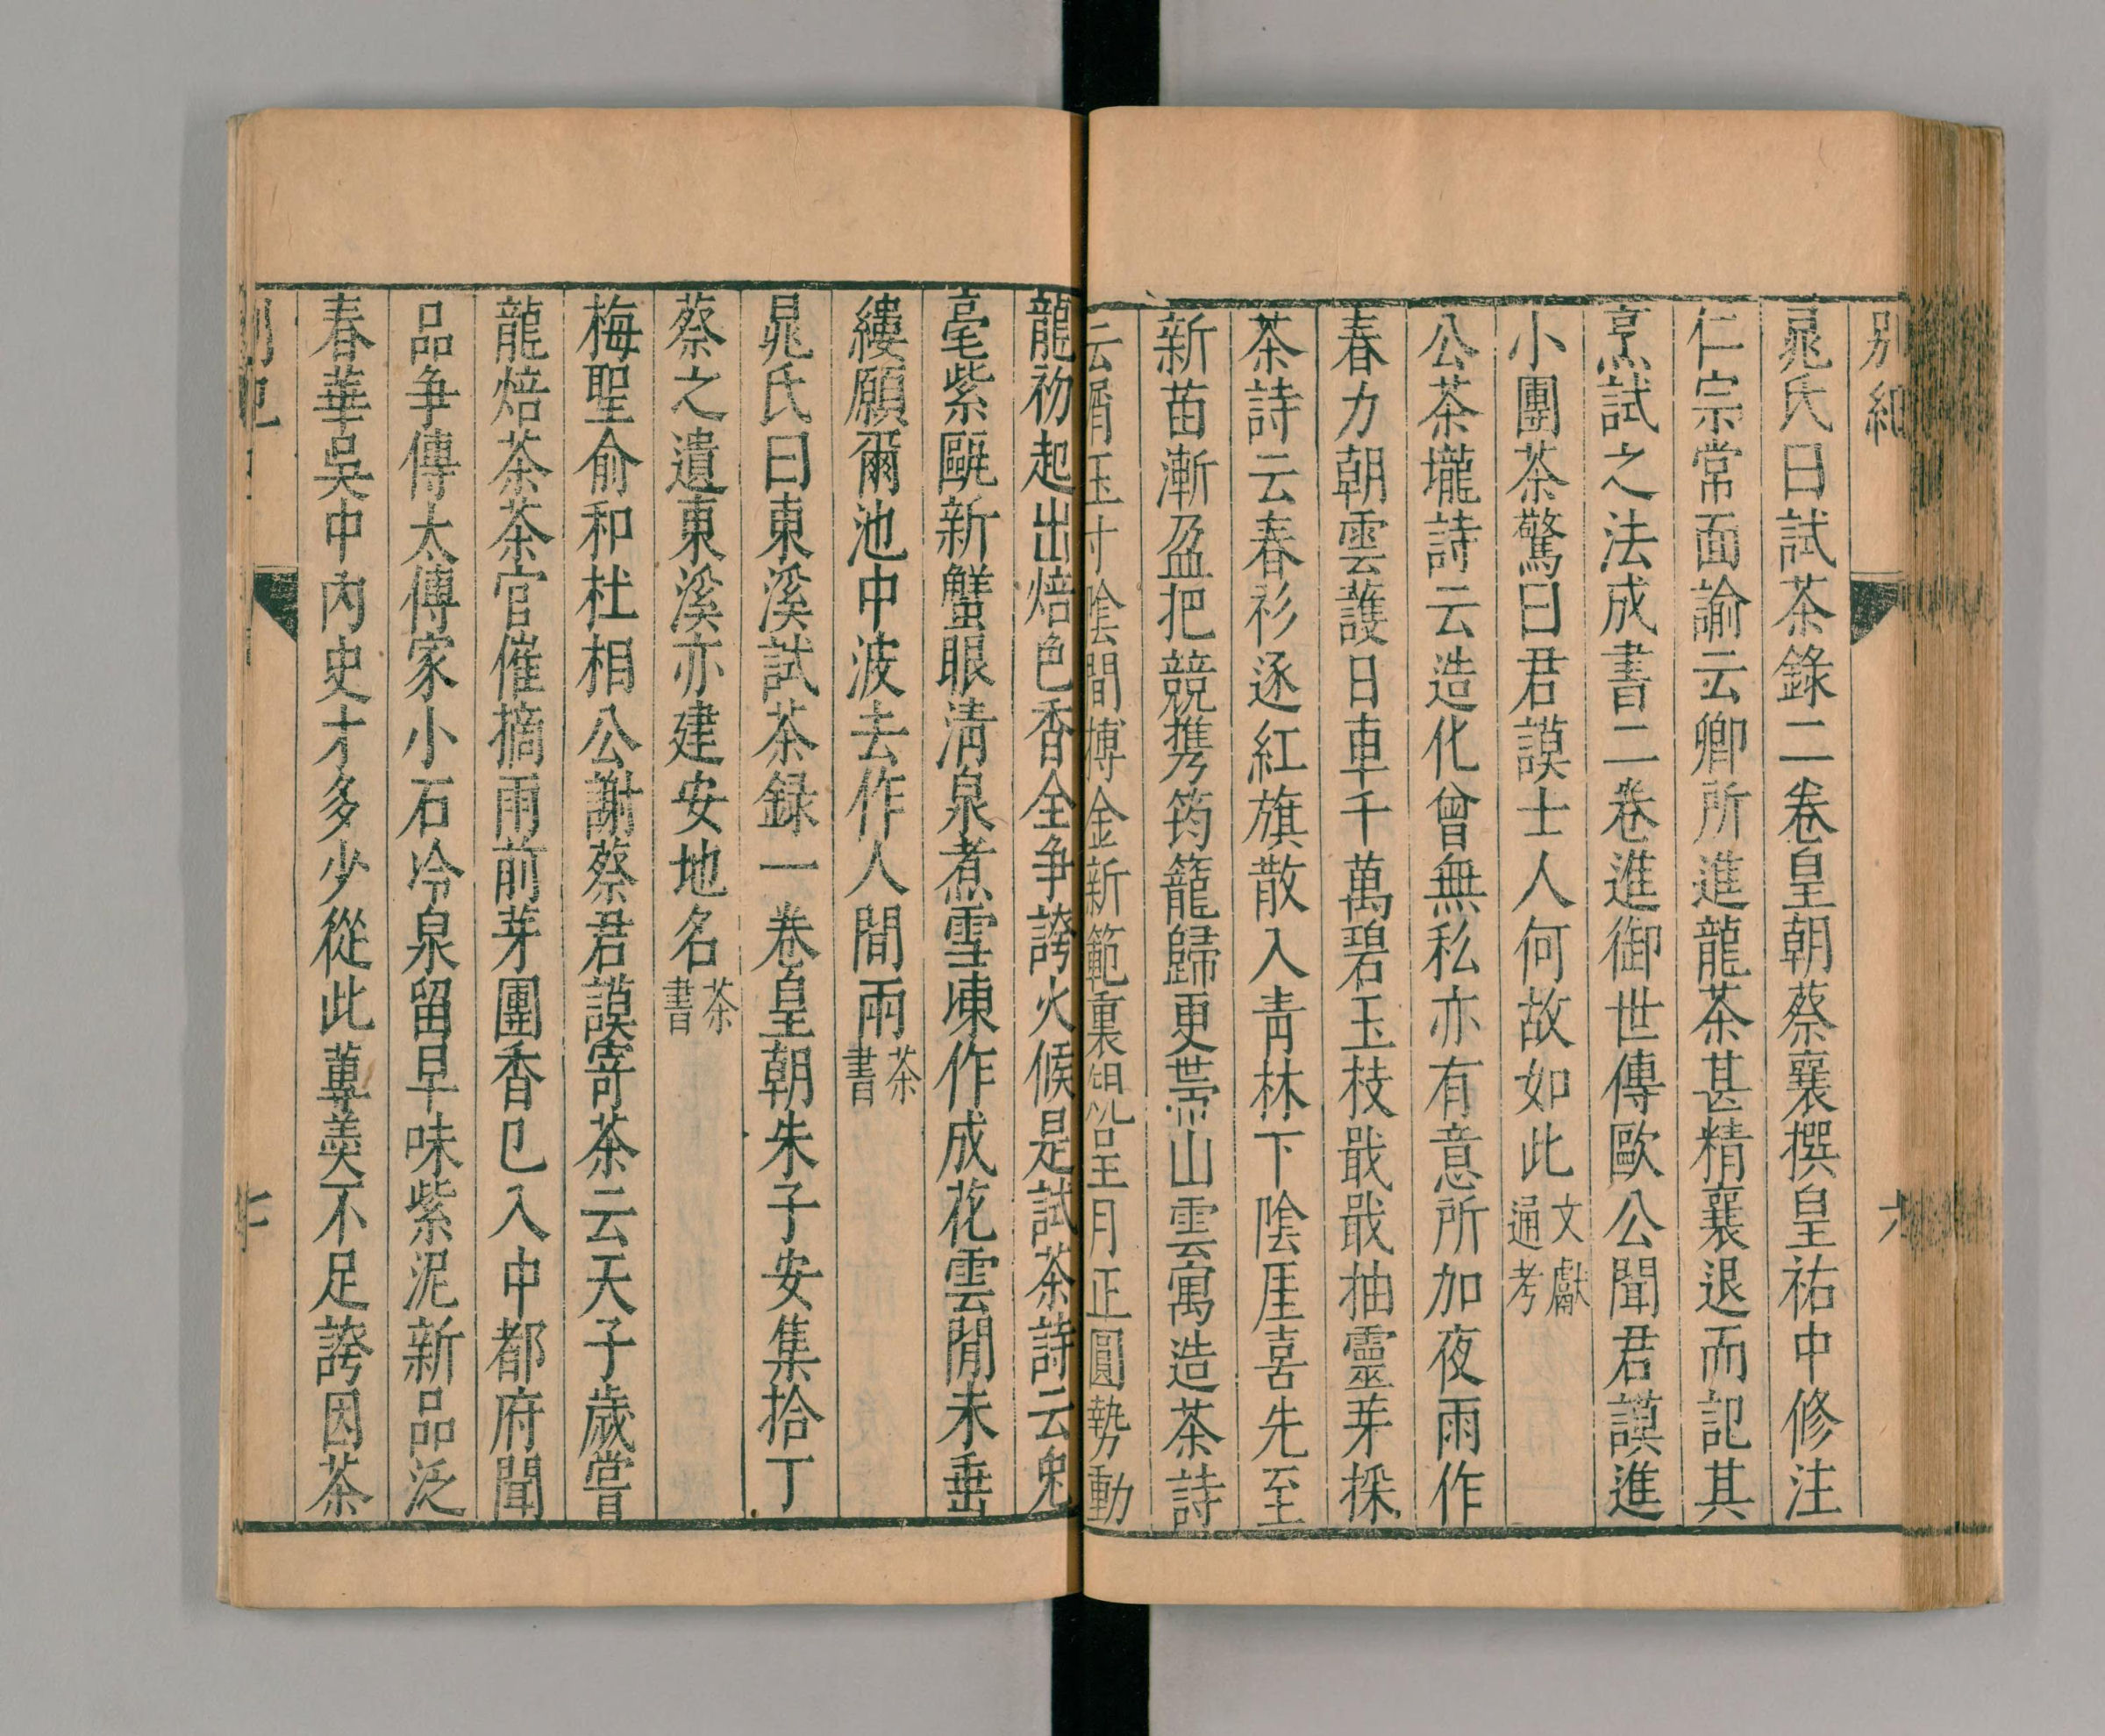 別紀
六
晁氏曰試茶錄二卷皇朝蔡襄撰皇祐中修注
仁宗常面諭云卿所進龍茶甚精襄退而記其
烹試之法成書二卷進御世傳歐公聞君謨進
小團茶驚曰君謨士人何故如此文獻通考
公茶壠詩云造化曾無私亦有意所加夜雨作
春力朝雲護日車千萬碧玉枝戢戢抽靈芽採
茶詩云春衫逐紅旗散入青林下陰厓喜先至
新苗漸盈把競攜筠籠歸更帶山雲寫造茶詩
云屑玉寸陰間摶金新範裏規呈月正圓勢動
龍初起出焙色香全争誇火候是試茶詩云兔
毫紫甌新蟹眼清泉煮雪凍作成花雲閒未垂
縷願爾池中波去作人間雨茶書
晁氏曰東溪試茶録一卷皇朝朱子安集拾丁
蔡之遺東溪亦建安地名茶書
梅聖俞和杜相公謝蔡君謨寄茶云天子歲嘗
龍焙茶茶官催摘雨前芽團香已入中都府閗
品争傳太傅家小石冷泉留早味紫泥新品泛
春華吳中內史才多少從此蓴羹不足誇因茶